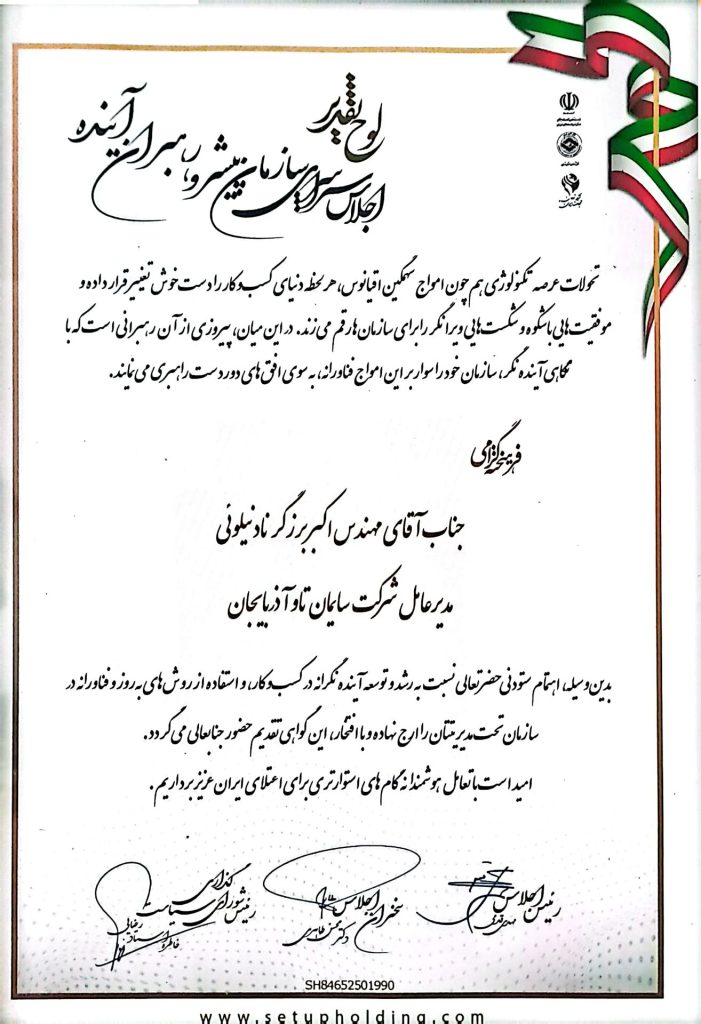 لوح تقدیر
اجلاس سراسری سازمان پیشرو، رهبران آینده
تحولات عرصه تکنولوژی هم چون امواج سهمگین اقیانوس، هر لحظه دنیای کسب و کار را دست خوش تغییر قرار داده و
موفقیت هایی باشکوه و شکست هایی ویرانگر را برای سازمان ها رقم می زند. در این میان، پیروزی از آن رهبرانی است که با
نگاهی آینده نگر، سازمان خود را سوار بر این امواج فناورانه، به سوی افق های دوردست راهبری می نمایند.
فرهیخته گرامی
جناب آقای مهندس اکبر برزگر نادنیلوئی
مدیرعامل شرکت سایمان تاو آذربایجان
بدین وسیله، اهتمام ستودنی حضرتعالی نسبت به رشد و توسعه آینده نگرانه در کسب و کار، و استفاده از روش های به روز و فناورانه در
سازمان تحت مدیریتتان را ارج نهاده و با افتخار، این گواهی تقدیم حضور جنابعالی می گردد.
امید است با تعامل هوشمندانه گام های استوارتری برای اعتلای ایران عزیز برداریم.
رئیس اجلاس
سخنران اجلاس
دکتر بهمن طاهری
رئیس شورای سیاست گذاری
SH84652501990
www.setupholding.com